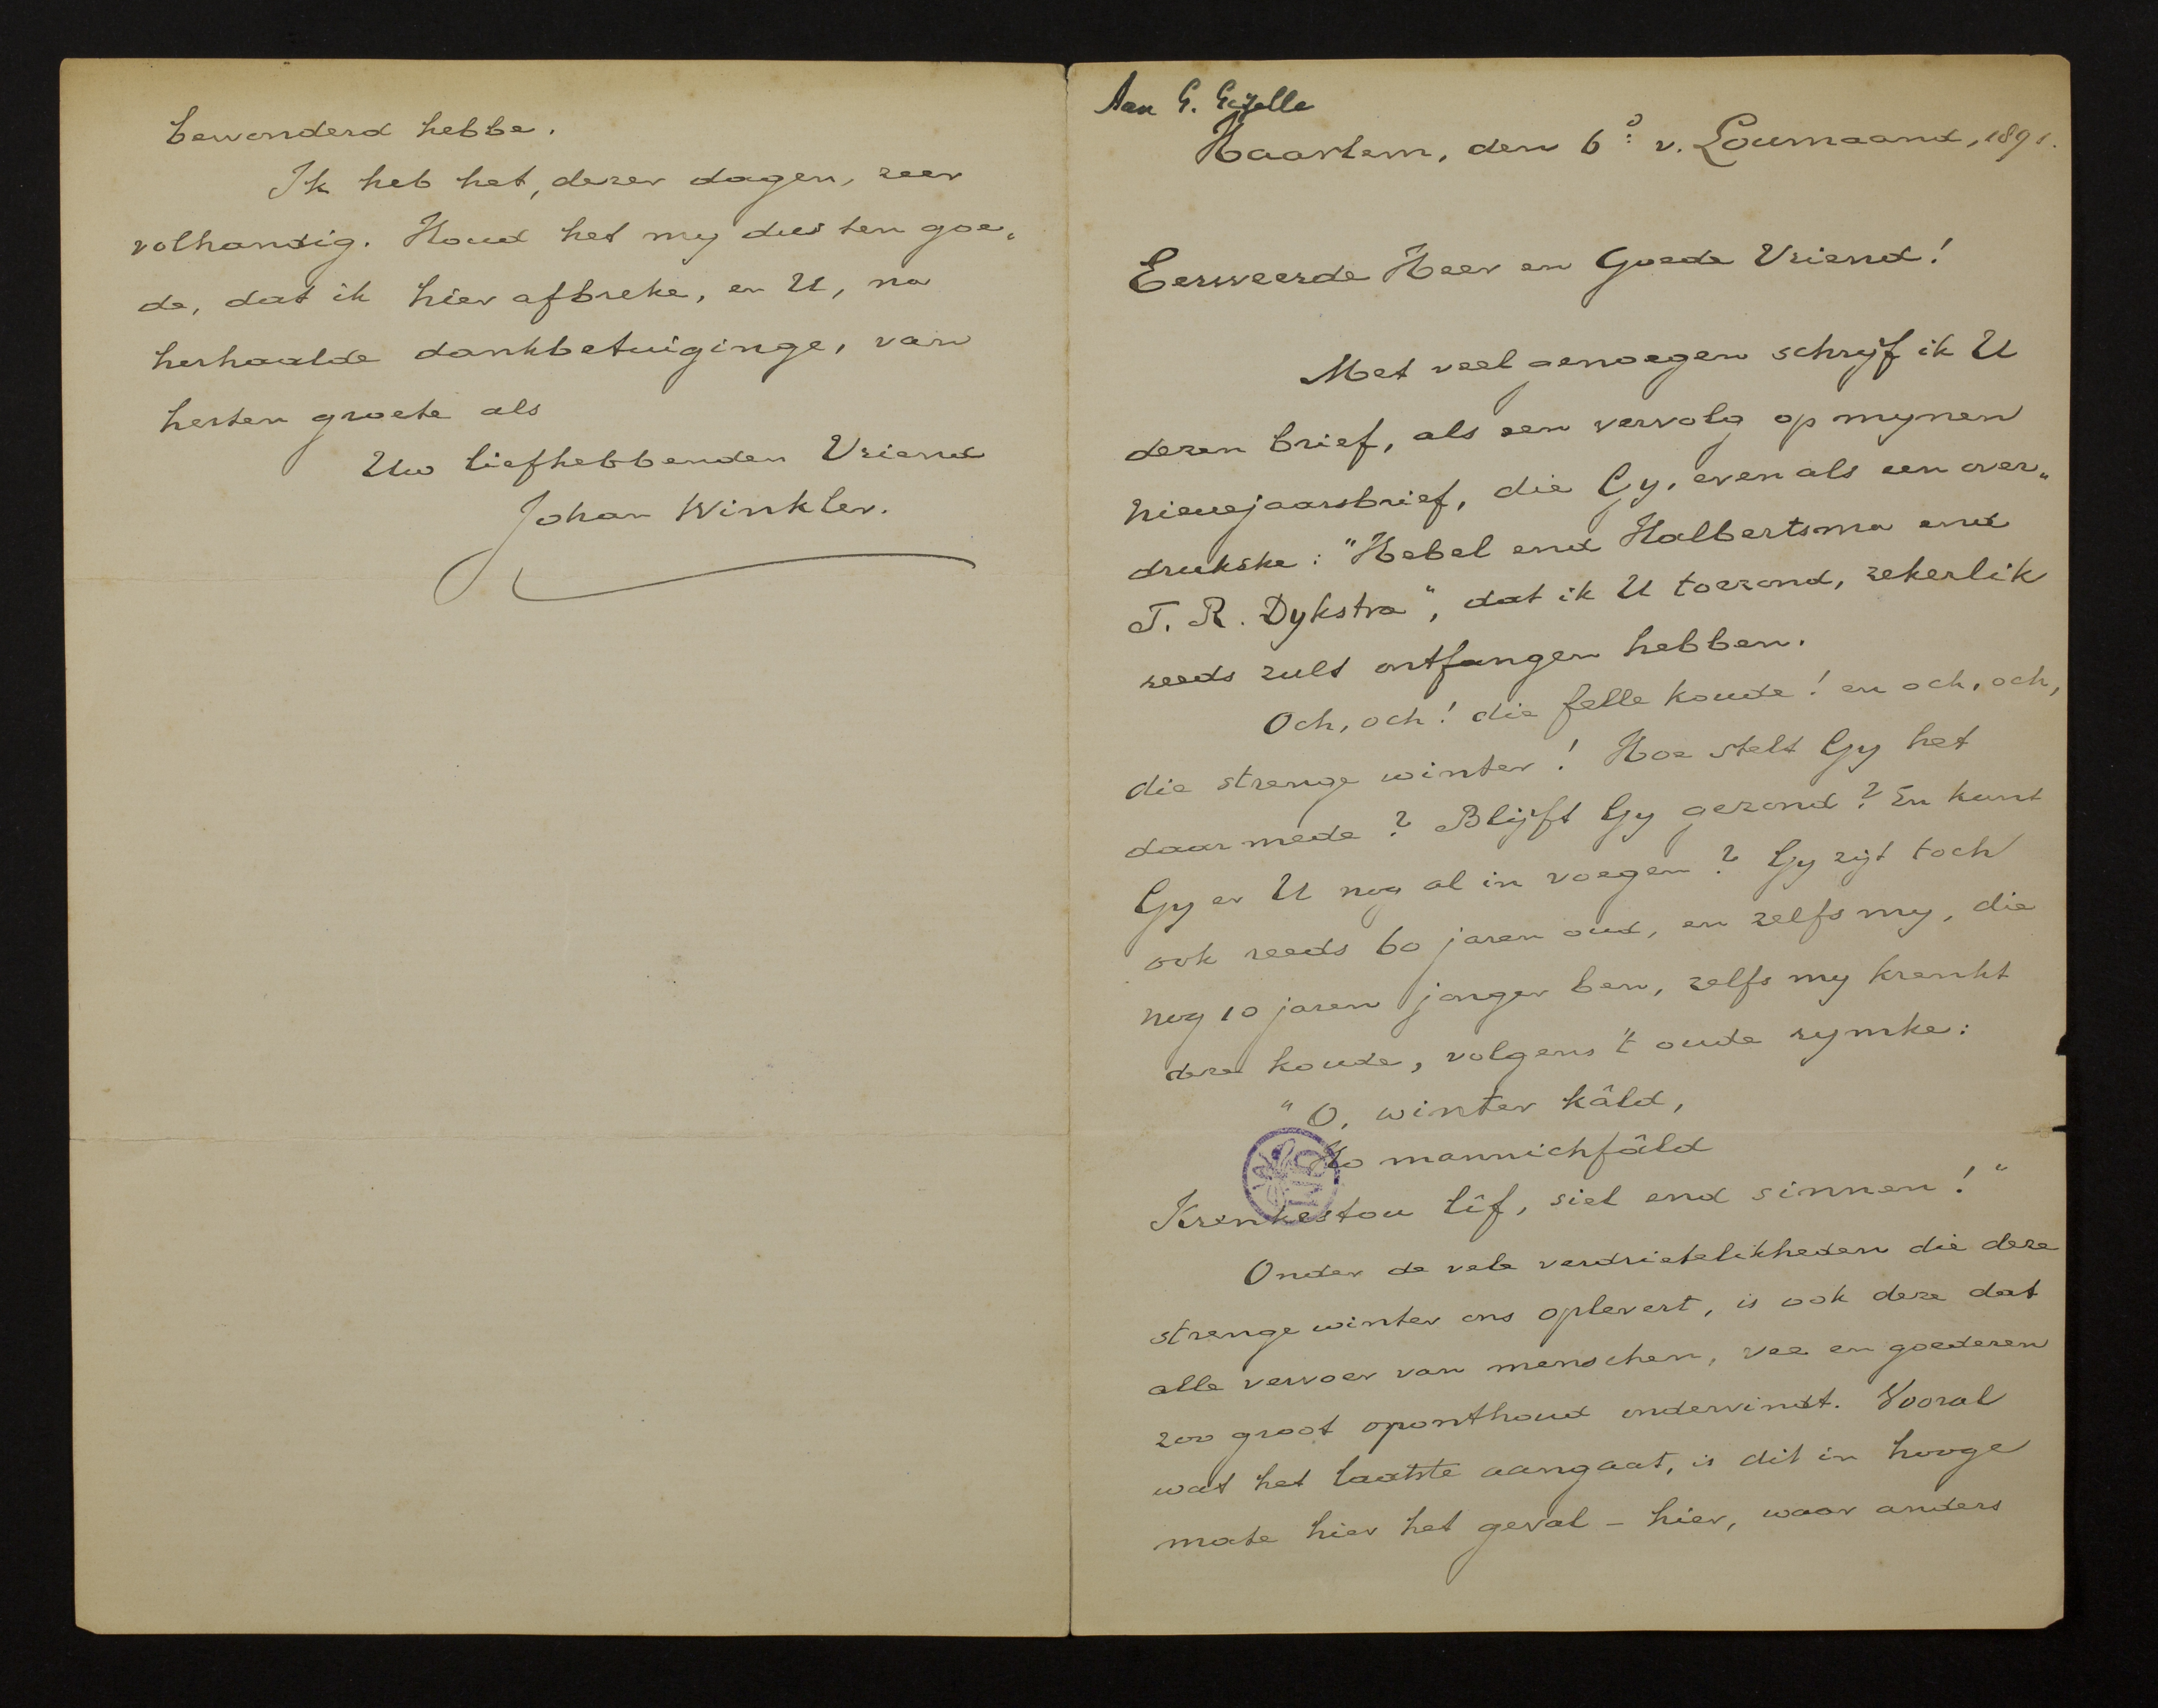 bewonderd hebbe.
Ik heb het, dezer dagen, zeer
volhandig. Houd het my dus ten goe„
de, dat ik hier afbreke, en U, na
herhaalde dankbetuiginge, van
herten groete als
Uw liefhebbenden Vriend
Johan Winkler.
Aan G. Gezelle
Haarlem, den 6:° v. Loumaand, 1891.
Eerweerde Heer en Goede Vriend!
Met veel genoegen schrijf ik U
dezen brief, als een vervolg op mynen
nieuejaarsbrief, die Gy, even als een over„
drukske: "Hebel end Halbertsma end
T. R. Dykstra", dat ik U toezond, zekerlik
reeds zult ontfangen hebben.
Och, och! die felle koude! en och, och,
die strenge winter! Hoe stelt Gy het
daarmede? Blijft Gy gezond? En kunt
Gy er U nog al in voegen? Gy zijt toch
ook reeds 60 jaren oud, en zelfs my, die
nog 10 jaren jonger ben, zelfs my krenkt
deze koude, volgens 't oude rymke:
"O, winter kâld,
Ho mannichfâld
Krenkestou lîf, siel end sinnen!"
Onder de vele verdrietelikheden die deze
strenge winter ons oplevert, is ook deze dat
alle vervoer van menschen, vee en goederen
zoo groot oponthoud ondervindt. Vooral
wat het laatste aangaat, is dit in hooge
mate hier het geval – hier, waar anders